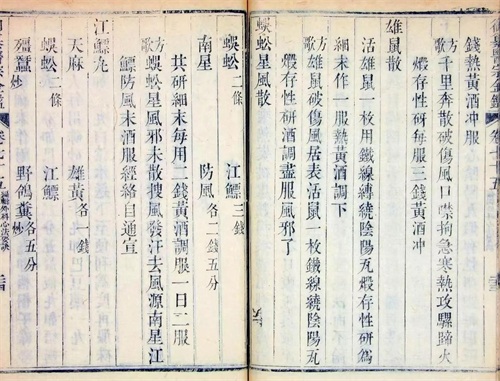 錢熱黃酒冲服
方歌 千里奔散破傷風口噤拘急寒熱攻騾蹄火
煅存性研每服三錢黃酒冲
雄鼠散
活雄鼠一枚用鐵線縛繞陰陽瓦煅存性研為
細末作一服熱黃酒調下
方歌 雄鼠破傷風居表活鼠一枚鐵線繞陰陽瓦
煅存性研酒調盡服風邪了
蜈蚣星風散
蜈蚣二條 江鰾三錢
南星 防風各二錢五分
共研細末每用二錢黃酒調服一日二服
方歌 蜈蚣星風邪未散搜風發汗去風源南星江
鰾防風末酒服經絡自通宣
江鰾丸
天麻 雄黃各一錢
蜈蚣二條 江鰾
殭蠶炒 野鴿糞炒各五分